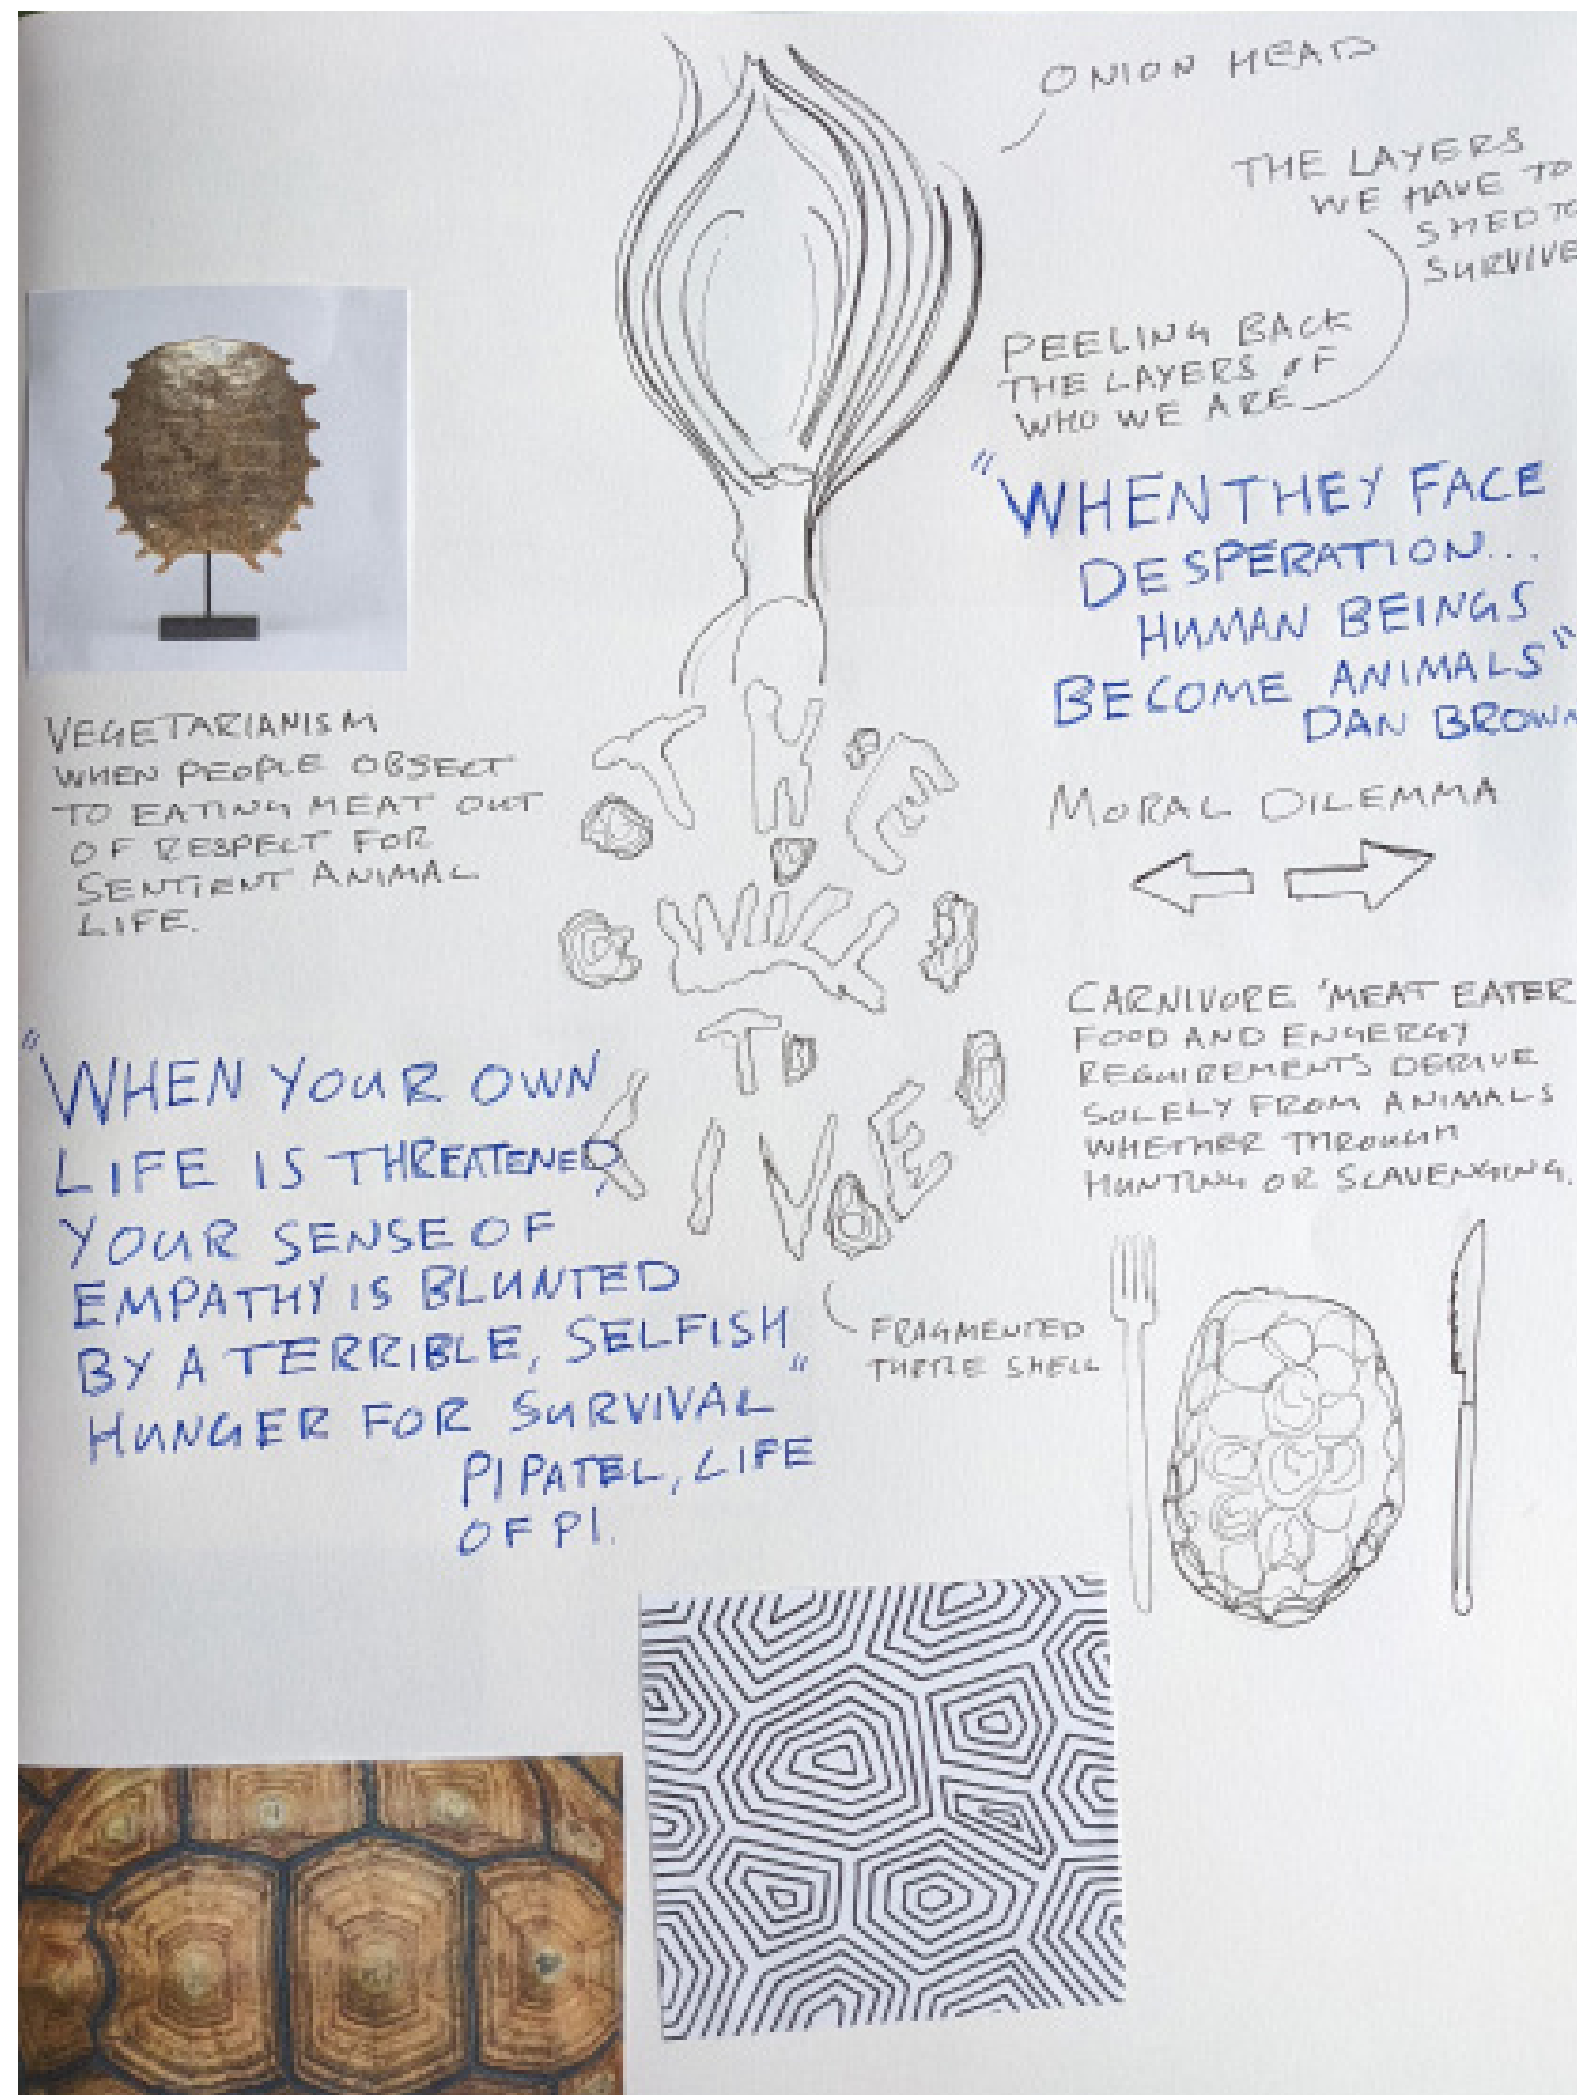 ONION HEAD
THE LAYERS
WE HAVE TO
SHED TO
SURVIVE
PEELING BACK
THE LAYERS OF
WHO WE ARE
"WHEN THEY FACE
DESPERATION...
HUMAN BEINGS
BECOME ANIMALS"
DAN BROWN
VEGETARIANISM
WHEN PEOPLE OBJECT
TO EATING MEAT OUT
OF RESPECT FOR
SENTIENT ANIMAL
LIFE.
THE
WILL
TO
LIVE
MORAL DILEMMA
CARNIVORE 'MEAT EATER
FOOD AND ENGERGY
REQUIREMENTS DERIVE
SOLELY FROM ANIMALS
WHETHER THROUGH
HUNTING OR SCAVENGING.
"WHEN YOUR OWN
LIFE IS THREATENED,
YOUR SENSE OF
EMPATHY IS BLUNTED
BY A TERRIBLE, SELFISH
HUNGER FOR SURVIVAL"
PI PATEL, LIFE
OF PI.
FRAGMENTED
TURTLE SHELL